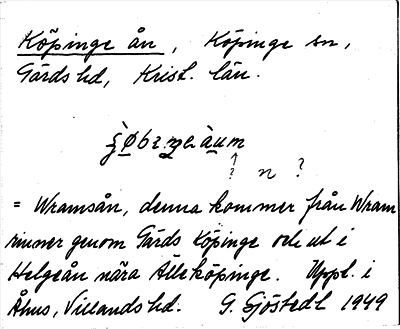 Köpinge ån, Köpinge sn,
Gärds hd, Krist. län.
? n ?
= Wramsån, denna kommer från Wram
rinner genom Gärds Köpinge och ut i
Helgeån nära Älleköpinge. Uppl. i
Åhus, Villands hd. G. Sjöstedt 1949